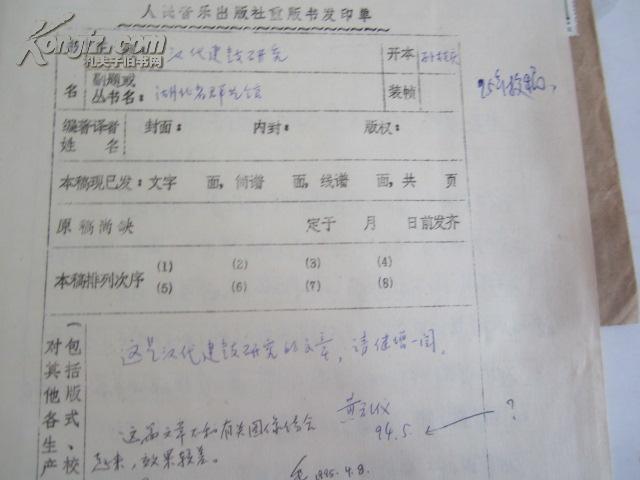 人民音乐出版社重版书发印单
汉代建鼓研究
开本
副题或
丛书名：
名
装帧
编著译者
姓名
封面：
内封：
版权：
本稿现已发：文字 面，简谱 面，线谱 面，共 页
原稿尚缺
定于 月 日前发齐
本稿排列次序
(1) (2) (3) (4)
(5) (6) (7) (8)
这是汉代建鼓研究的文章，请健增一阅。
94.5.
?
这篇文章不和有关图像结合
起来，效果较差。
1995.4.8.
（包括版式、校
对其他各生产
孔夫子旧书网